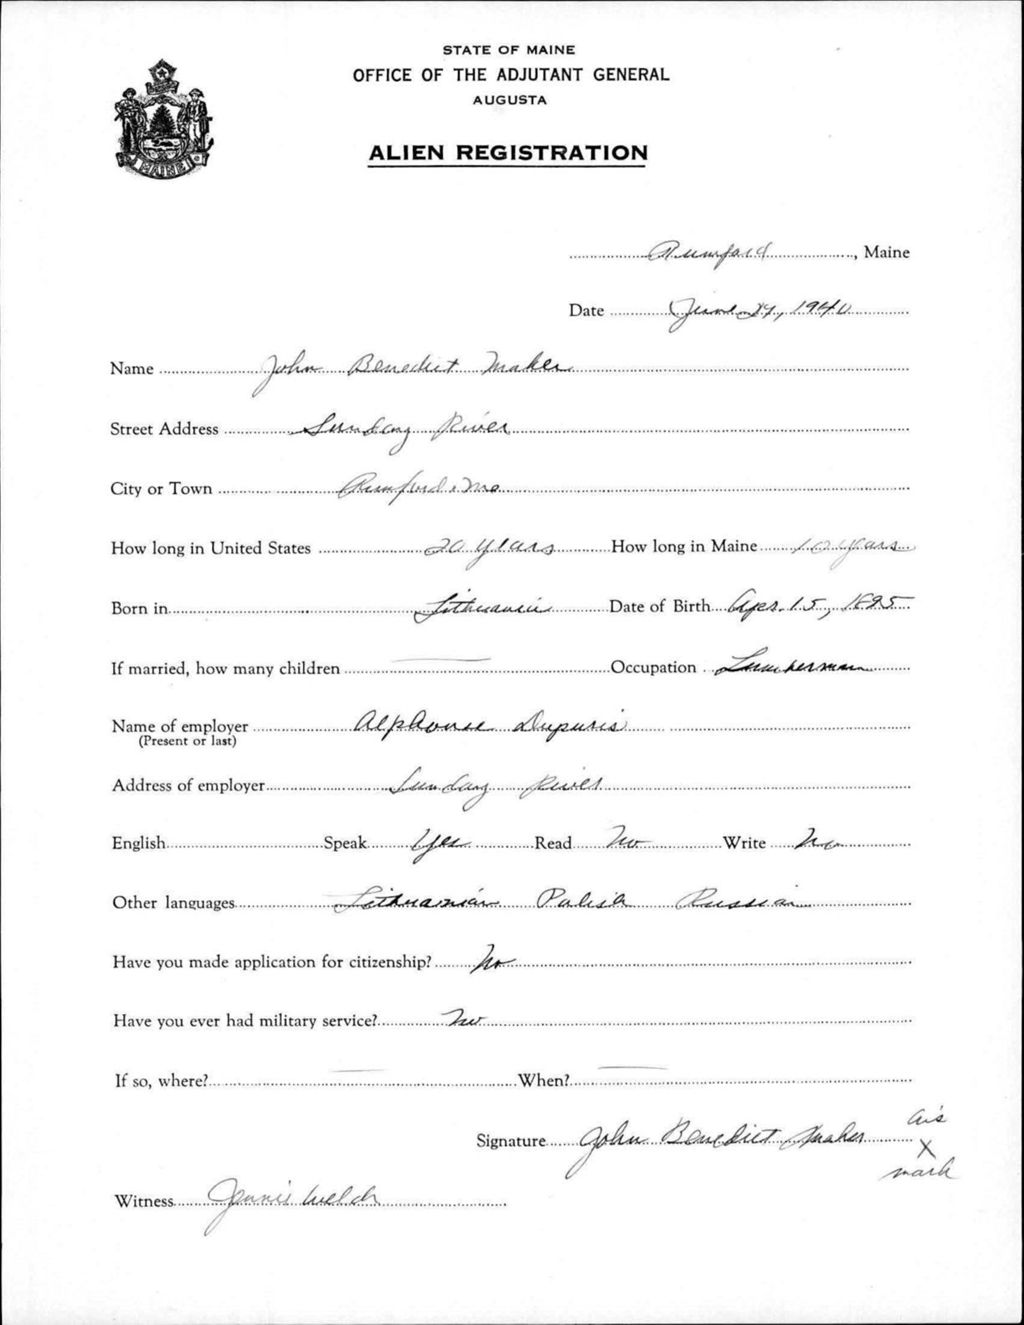 STATE OF MAINE
OFFICE OF THE ADJUTANT GENERAL
AUGUSTA
MAINE
ALIEN REGISTRATION
Rumford, Maine
Date June 1940
Name John Benedict Maker
Street Address Sunday River
City or Town Rumford, Me
How long in United States 20 years How long in Maine 10 years
Born in Lithuania Date of Birth Apr. 15, 1895
If married, how many children — Occupation Lumberman
Name of employer Alphonse Dupuris
(Present or last)
Address of employer Sunday River
English Speak Yes Read No Write No
Other languages Lithuanian Polish Russian
Have you made application for citizenship? No
Have you ever had military service? No
If so, where? — When? —
Signature John Benedict Maker his
X
mark
Witness Jennie Welch